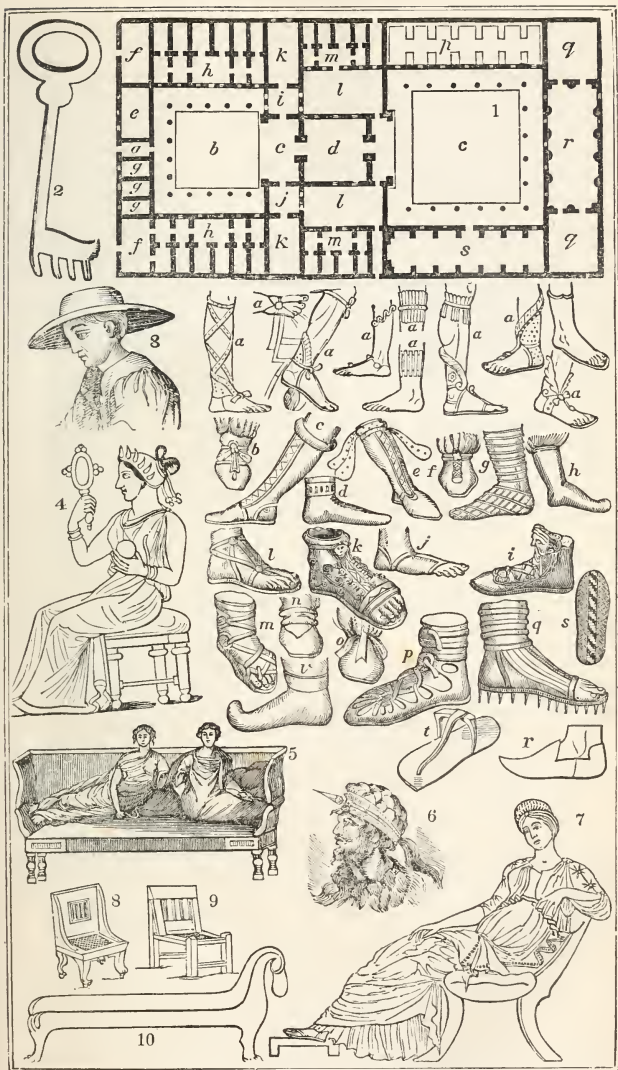 f h k m p q
i l 1
e
a b c d c r
g
g 2
g j l
f h k m s q
3 a a a a a a a
a
b c d e f g h
4
l k j i
m n o p q s
v
t r
5
6 7
8 9
10